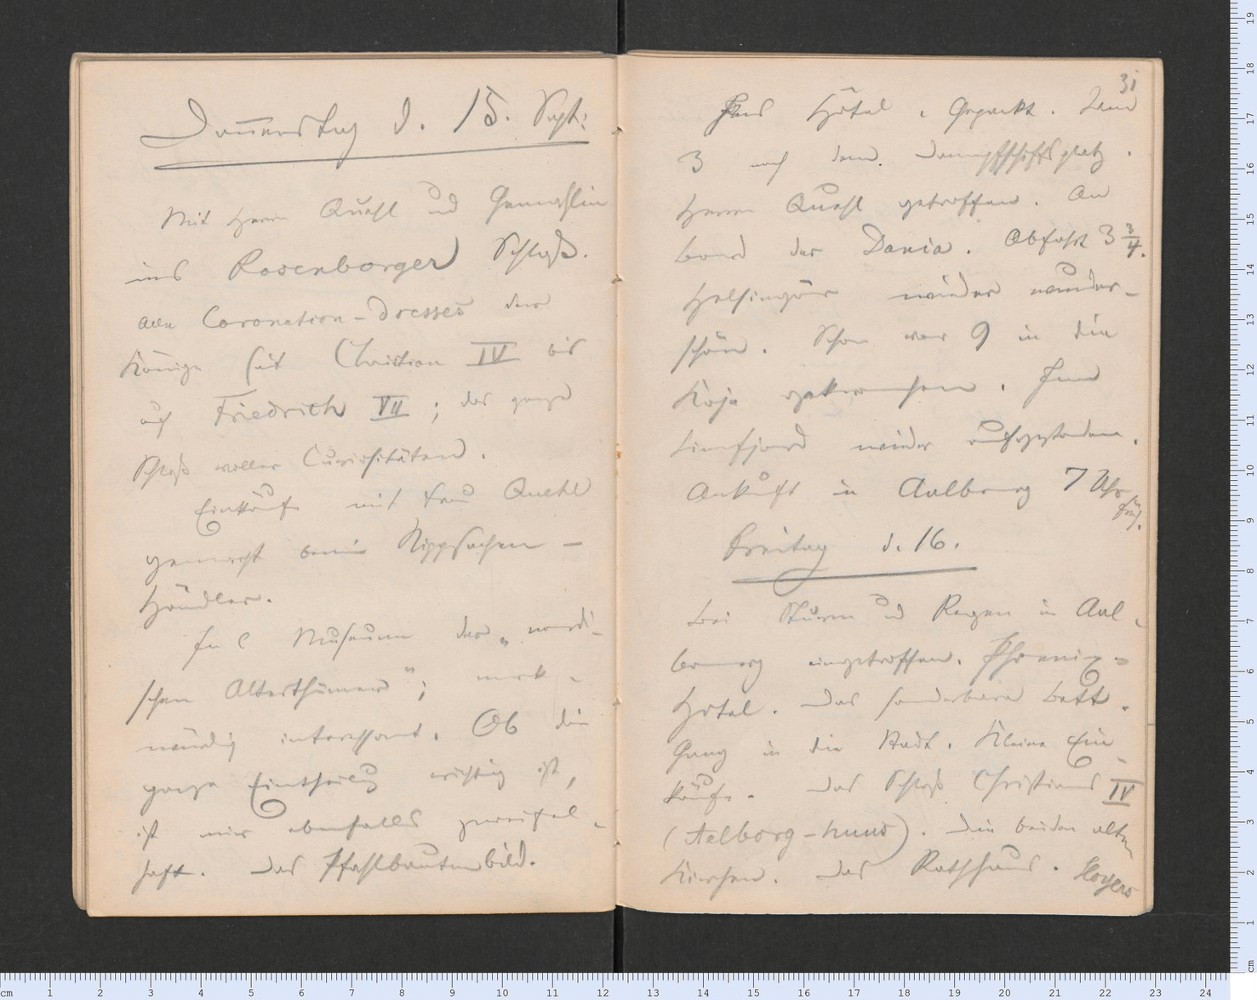 Donnerstag d. 15. Sept:
Mit Herrn Quehl und Gemahlin
ins Rosenborger Schloß.
Alle Coronation-Dresses der
Könige seit Christian IV bis
auf Friedrich VII; das ganze
Schloß voller Curiositäten.
Einkäufe mit Frau Quehl
gemacht beim Nippsachen-
Händler.
Ins Museum der „nordi-
schen Alterthümer"; merk-
würdig interessant. Ob die
ganze Eintheilung richtig ist,
ist mir ebenfalls zweifel-
haft. Das Pfahlbautenbild.
31
Ins Hôtel. Gepackt. Um
3 nach dem Dampfschiffsplatz.
Herrn Quehl getroffen. An
Bord der Dania. Abfahrt 3 3/4.
Helsingör wieder wunder-
schön. Schon vor 9 in die
Koje gekrochen. Im
Limfjord wieder aufgestanden.
Ankunft in Aalborg 7 Uhr
früh.
Freitag d. 16.
Bei Sturm und Regen in Aal-
borg eingetroffen. Phoenix-
Hotel. Das sonderbare Bett.
Gang in die Stadt. Kleine Ein-
käufe. Das Schloß Christians IV
(Aalborg-huus). Die beiden alten
Kirchen. Das Rathhaus. Hoyers